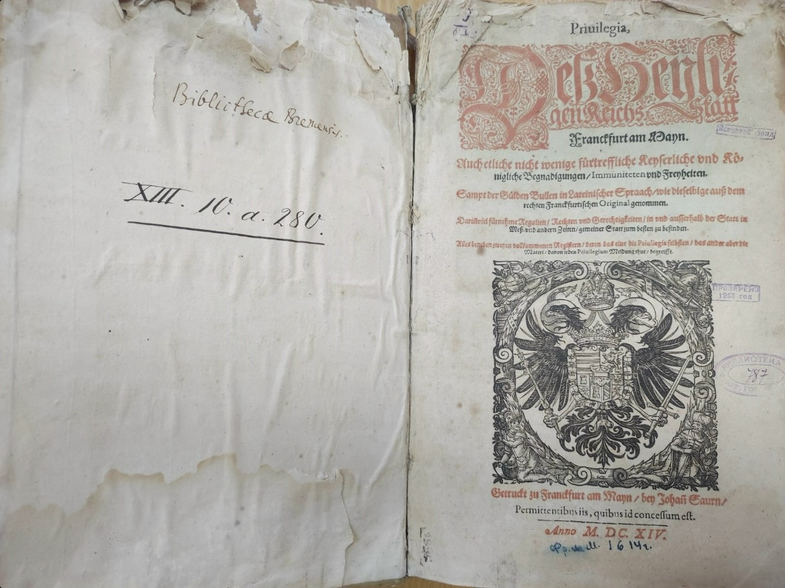 Bibliothecæ Bremensis.
XIII. 10. a. 280.
Priuilegia,
Deß Heyli-
gen Reichs Statt
Franckfurt am Mayn.
Auch etliche nicht wenige fürtreffliche Keyserliche vnd Kö-
nigliche Begnadigungen / Immuniteten vnd Freyheiten.
Sampt der Gülden Bullen in Lateinischer Spraach / wie dieselbige auß dem
rechten Franckfurtischen Original genommen.
Darinn fürnähme Regalien / Rechten vnd Gerechtigkeiten / in vnd ausserhalb der Statt in
Meß vnd andern Zeiten / gemeiner Statt zum besten zu befinden.
Alles beneben zweyen vollkommenen Registern / deren das eine die Priuilegia selbsten / das ander aber die
Materi / dauon jedes Priuilegium Meldung thut / begreifft.
ПРОВЕРЕНО
1958 год
БИБЛИОТЕКА
787
Getruckt zu Franckfurt am Mayn / bey Johañ Saurn /
Permittentibus iis, quibus id concessum est.
Anno M. DC. XIV.
1614г.